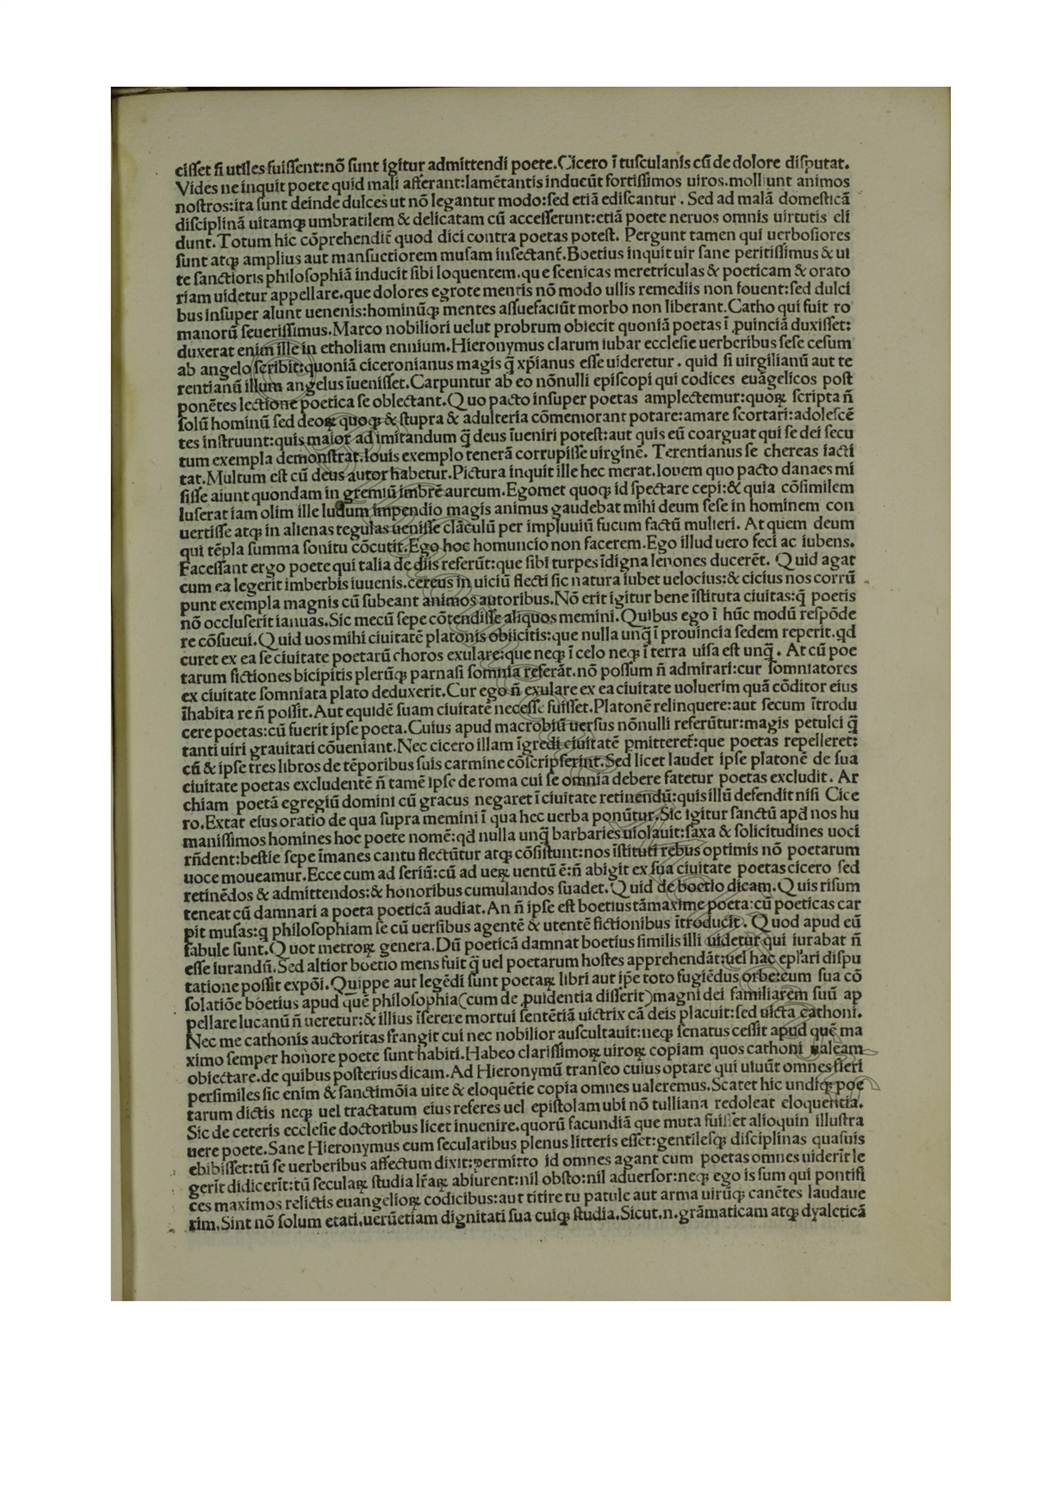 ciſſet ſi utiles fuiſſent:nõ ſunt igitur admittendi poete.Cicero ĩ tuſculanis cũ de dolore diſputat.
Vides ne inquit poete quid mali afferant:lamẽtantis inducũt fortiſſimos uiros.molliunt animos
noſtros:ita ſunt deinde dulces ut nõ legantur modo:ſed etiã ediſcantur. Sed ad malã domeſticã
diſciplinã uitamqꝫ umbratilem & delicatam cũ acceſſerunt:etiã poete neruos omnis uirtutis eli
dunt.Totum hic cõprehendit̃ quod dici contra poetas poteſt. Pergunt tamen qui uerboſiores
ſunt atqꝫ amplius aut manſuetiorem muſam inſectant̃.Boetius inquit uir ſane peritiſſimus & ui
te ſanctioris philoſophiã inducit ſibi loquentem.que ſcenicas meretriculas & poeticam & orato
riam uidetur appellare.que dolores egrote mentis nõ modo ullis remediis non fouent:ſed dulci
bus inſuper alunt uenenis:hominũqꝫ mentes aſſuefaciũt morbo non liberant.Catho qui fuit ro
manorũ ſeueriſſimus.Marco nobiliori uelut probrum obiecit quoniã poetas ĩ ꝓuinciã duxiſſet:
duxerat enim ille in etholiam ennium.Hieronymus clarum iubar eccleſie uerberibus ſeſe ceſum
ab angelo ſcribit:quoniã ciceronianus magis q̃ xp̃ianus eſſe uideretur. quid ſi uirgilianũ aut te
rentianũ illum angelus ĩueniſſet.Carpuntur ab eo nõnulli epiſcopi qui codices euãgelicos poſt
ponẽtes lectione poetica ſe oblectant.Quo pacto inſuper poetas amplectemur:quoꝝ ſcripta ñ
ſolũ hominũ ſed deoꝝ quoqꝫ & ſtupra & adulteria cõmemorant potare:amare ſcortari:adoleſcẽ
tes inſtruunt:quis maior ad imitandum q̃ deus ĩueniri poteſt:aut quis eũ coarguat qui ſe dei ſecu
tum exempla demonſtrat.Iouis exemplo tenerã corrupiſſe uirginẽ. Terentianus ſe chereas iacti
tat.Multum eſt cũ deus autor habetur.Pictura inquit ille hec merat.Iovem quo pacto danaes mi
ſiſſe aiunt quondam in gremiũ imbrẽ aureum.Egomet quoqꝫ id ſpectare cepi:& quia cõſimilem
luſerat iam olim ille ludum impendio magis animus gaudebat mihi deum ſeſe in hominem con
uertiſſe atqꝫ in alienas tegulas ueniſſe clãculũ per impluuiũ fucum factũ mulieri. At quem deum
qui tẽpla ſumma ſonitu cõcutit.Ego hoc homuncio non facerem.Ego illud uero feci ac iubens.
Faceſſant ergo poete qui talia de diis referũt:que ſibi turpes ĩdigna lenones ducerẽt. Quid agat
cum ea legerit imberbis iuuenis.cereus in uiciũ flecti ſic natura iubet uelocius:& cicius nos corrũ
punt exempla magnis cũ ſubeant animos autoribus.Nõ erit igitur bene ĩſtituta ciuitas:q̃ poetis
nõ occluſerit ianuas.Sic mecũ ſepe cõtendiſſe aliquos memini.Quibus ego ĩ hũc modũ reſpõde
re cõſueui.Quid uos mihi ciuitatẽ platonis obiicitis:que nulla unq̃ ĩ prouincia ſedem reperit.qd
curet ex ea ſe ciuitate poetarũ choros exulare:que neqꝫ ĩ celo neqꝫ ĩ terra uiſa eſt unq̃. At cũ poe
tarum fictiones bicipitis plerũqꝫ parnaſi ſomnia referãt.nõ poſſum ñ admirari:cur ſomniatores
ex ciuitate ſomniata plato deduxerit.Cur ego ñ exulare ex ea ciuitate uoluerim quã cõditor eius
ĩhabita re ñ poſſit.Aut equidẽ ſuam ciuitatẽ neceſſe fuiſſet.Platonẽ relinquere:aut ſecum ĩtrodu
cere poetas:cũ fuerit ipſe poeta.Cuius apud macrobiũ uerſus nõnulli referũtur:magis petulci q̃
tanti uiri grauitati cõueniant.Nec cicero illam ĩgredi ciuitatẽ pmitteret̃:que poetas repelleret:
cũ & ipſe tres libros de tẽporibus ſuis carmine cõſcripſerint.Sed licet laudet ipſe platonẽ de ſua
ciuitate poetas excludentẽ ñ tamẽ ipſe de roma cui ſe omnia debere fatetur poetas excludit. Ar
chiam poetã egregiũ domini cũ gracus negaret ĩ ciuitate retinendũ:quis illũ defendit niſi Cice
ro.Extat eius oratio de qua ſupra memini ĩ qua hec uerba ponũtur.Sic igitur ſanctũ apd nos hu
maniſſimos homines hoc poete nomẽ:qd nulla unq̃ barbaries uiolauit:ſaxa & ſolicitudines uoci
rñdent:beſtie ſepe ĩmanes cantu flectũtur atqꝫ cõſiſtunt:nos ĩſtituti rebus optimis nõ poetarum
uoce moueamur.Ecce cum ad ſeriũ:cũ ad ueꝝ uentũ ẽ:ñ abigit ex ſua ciuitate poetas cicero ſed
retinẽdos & admittendos:& honoribus cumulandos ſuadet.Quid de boetio dicam.Quis riſum
teneat cũ damnari a poeta poeticã audiat.An ñ ipſe eſt boetius tãmaxime poeta:cũ poeticas car
pit muſas:q philoſophiam ſe cũ uerſibus agentẽ & utentẽ fictionibus ĩtroducit. Quod apud eũ
fabule ſunt.Quot metroꝝ genera.Dũ poeticã damnat boetius ſimilis illi uidetur qui iurabat ñ
eſſe iurandũ.Sed altior boetio mens fuit q̃ uel poetarum hoſtes apprehendãt:uel hac ep̃lari diſpu
tatione poſſit expõi.Quippe aut legẽdi ſunt poetaꝝ libri aut ip̃e toto fugiẽdus orbe:cum ſua cõ
ſolatiõe boetius apud quẽ philoſophia(cum de ꝓuidentia diſſerit)magni dei familiarem ſuũ ap
pellare lucanũ ñ ueretur:& illius ĩſerere mortui ſentẽtiã uictrix cã deis placuit:ſed uicta cathoni.
Nec me cathonis auctoritas frangit cui nec nobilior auſcultauit:neqꝫ ſenatus ceſſit apud quẽ ma
ximo ſemper honore poete ſunt habiti.Habeo clariſſimoꝝ uiroꝝ copiam quos cathoni ualeam
obiectare.de quibus poſterius dicam.Ad Hieronymũ tranſeo cuius optare qui uiuũt omnes fieri
perſimiles ſic enim & ſanctimõia uite & eloquẽtie copia omnes ualeremus.Scatet hic undiqꝫ poe
tarum dictis neqꝫ uel tractatum eius referes uel epiſtolam ubi nõ tulliana redoleat eloquentia.
Sic de ceteris eccleſie doctoribus licet inuenire.quorũ facundiã que muta fuiſſet alioquin illuſtra
uere poete.Sane Hieronymus cum ſecularibus plenus litteris eſſet:gentileſqꝫ diſciplinas quaſuis
ebibiſſet:tũ ſe uerberibus affectum dixit:permitto id omnes agant cum poetas omnes uiderĩt le
gerĩt didicerĩt:tũ ſeculaꝝ ſtudia lr̃aꝝ abiurent:nil obſto:nil aduerſor:neqꝫ ego is ſum qui pontifi
ces maximos relictis euangelioꝝ codicibus:aut titire tu patule aut arma uirũqꝫ canẽtes laudaue
rim.Sint nõ ſolum etati.uerũetiam dignitati ſua cuiqꝫ ſtudia.Sicut.n.grãmaticam atqꝫ dyalcticã